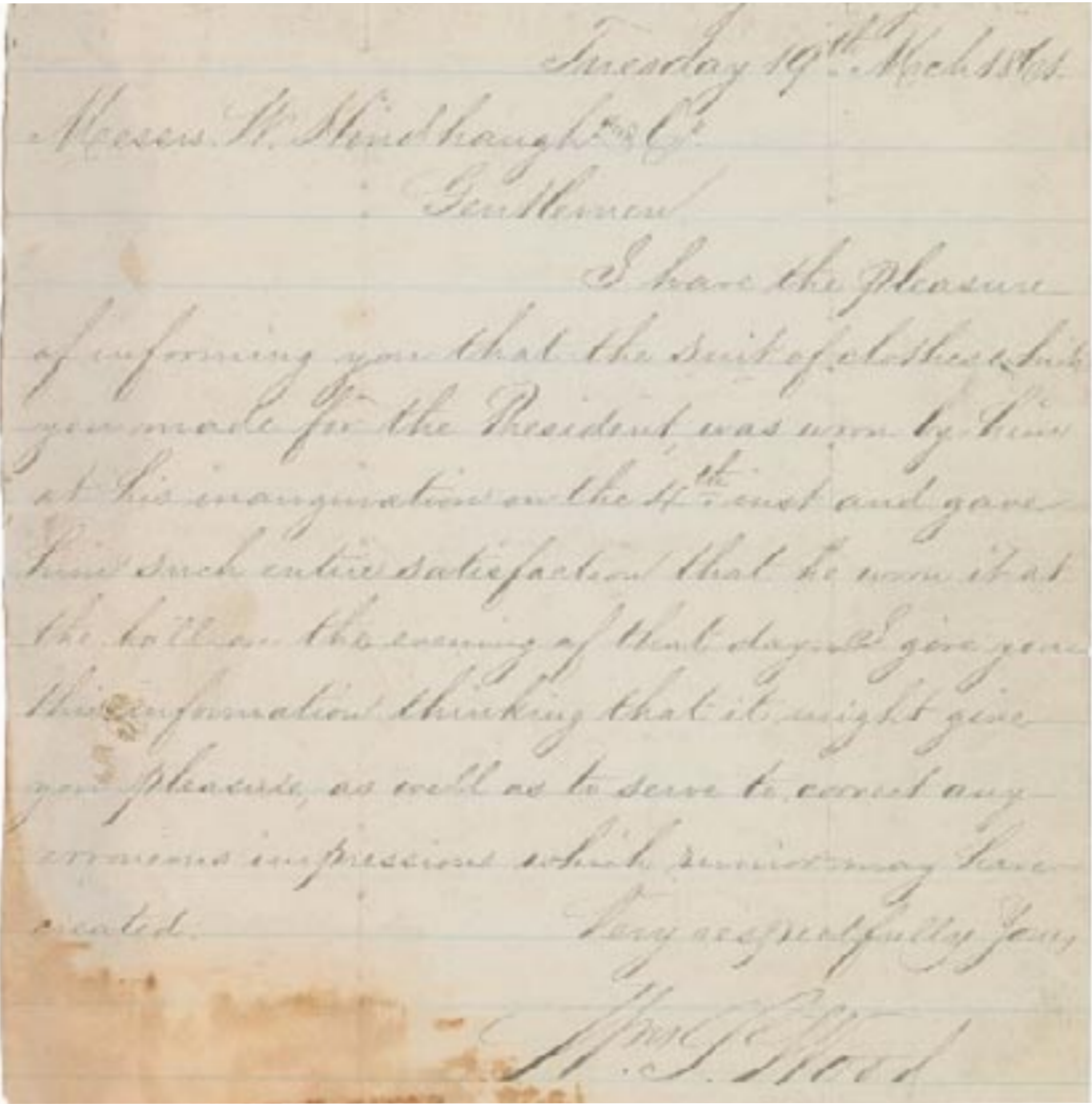 Tuesday 19th. Mch 1861.
Messrs. W. Hindhaugh & Co.
Gentlemen
I have the pleasure
of informing you that the suit of clothes which
you made for the President, was worn by him
at his inauguration on the 4th. inst and gave
him such entire satisfaction that he worn it at
the ball on the evening of that day. I give you
this information thinking that it might give
you pleasure, as well as to serve to correct any
erroneous impressions which rumor may have
created.
Very respectfully Yours
Wm S. Wood